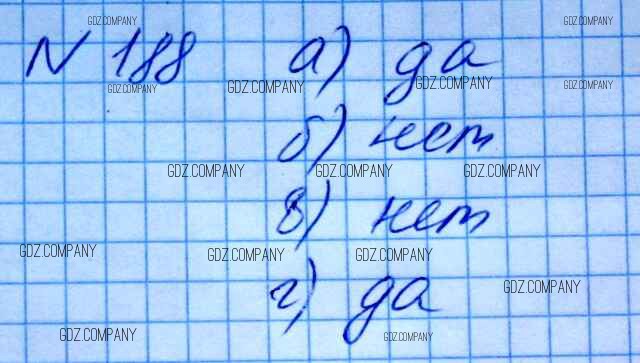 GDZ.COMPANY GDZ.COMPANY
N 188 а) да
GDZ.COMPANY GDZ.COMPANY GDZ.COMPANY GDZ.COMPANY
б) нет
GDZ.COMPANY GDZ.COMPANY GDZ.COMPANY
в) нет
GDZ.COMPANY GDZ.COMPANY GDZ.COMPANY
г) да
GDZ.COMPANY
GDZ.COMPANY GDZ.COMPANY